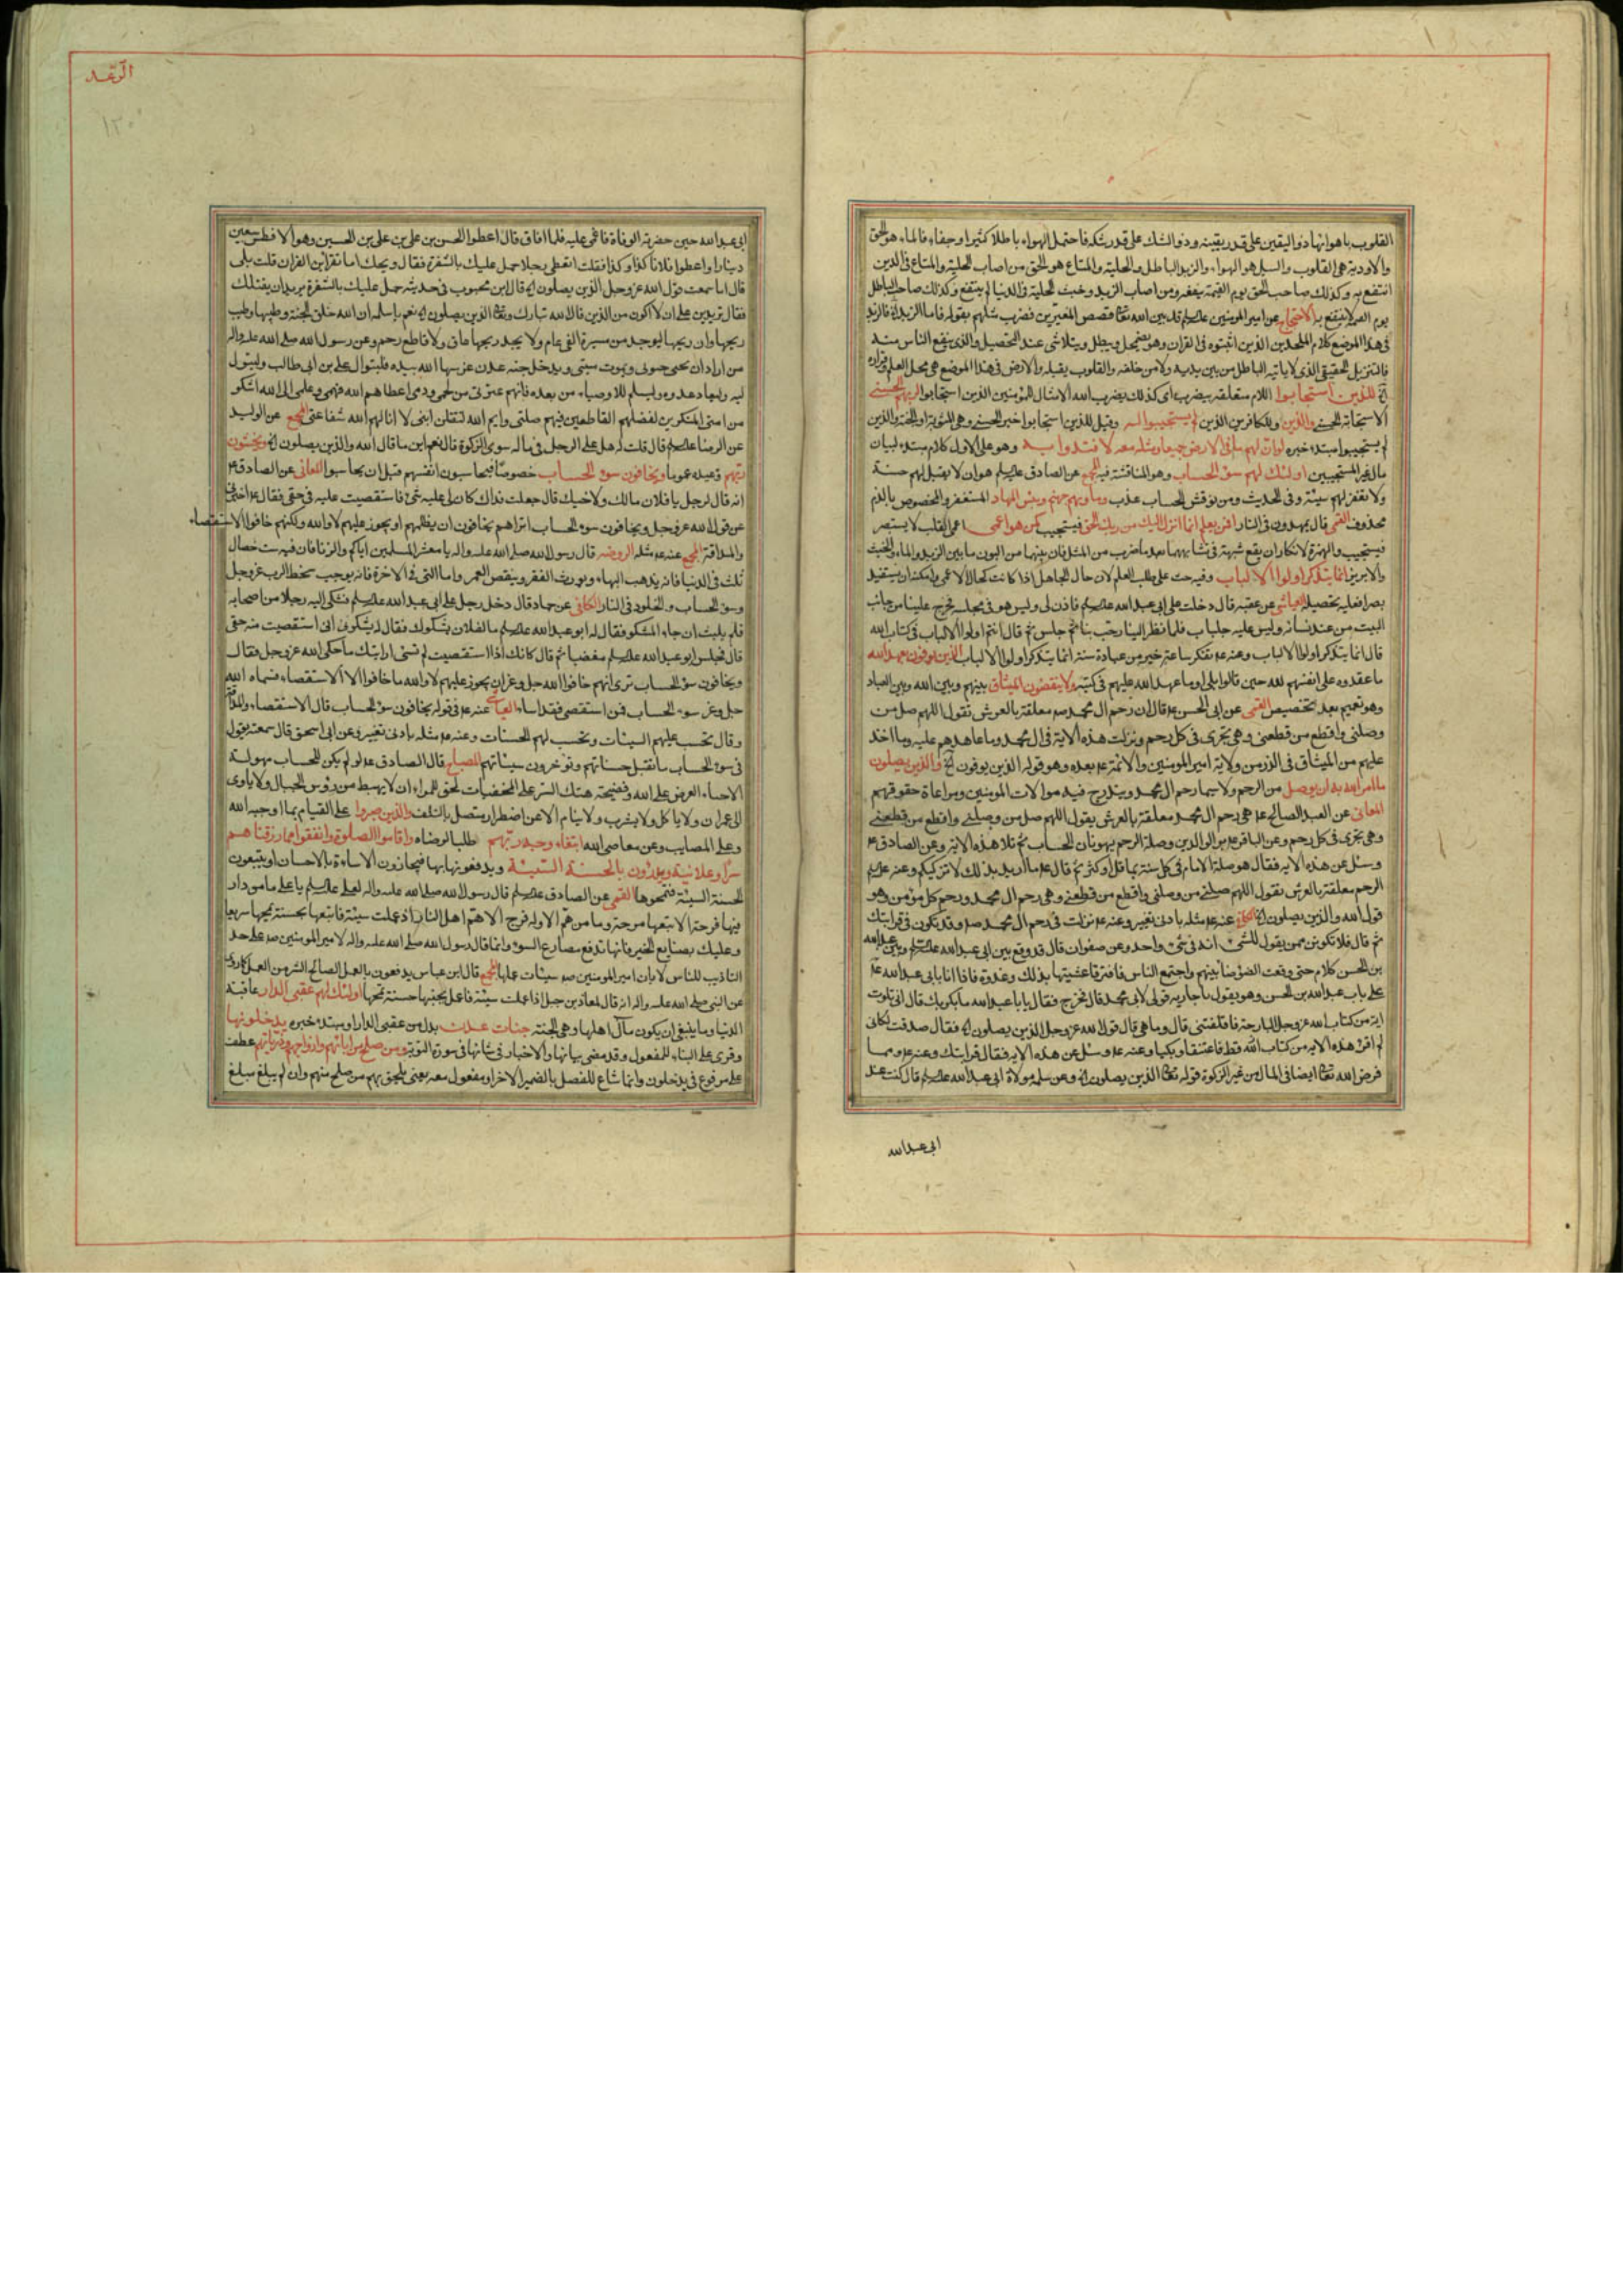 القلوب باهوائها ذو اليقين على قدر يقينه وذو الشك على قدر شكه فاحتمل الهواء باطلا كثيرا وجفاء فالماء هو الحق
والاودية هي القلوب والسيل هو الهواء والزبد الباطل والحلية والمتاع هو الحق من اصاب الحلية والمتاع في الدنيا
انتفع به وكذلك صاحب الحق يوم القيمة ينفعه ومن اصاب الزبد وخبث الحلية في الدنيا لم ينتفع وكذلك صاحب الباطل
يوم القيمة لا ينتفع به الاحتجاج عن امير المومنين عليه السلم قد بين الله تعالى قصص المغيرين فضرب مثلهم بقوله فاما الزبد فالزبد
في هذا الموضع كلام الملحدين الذين اثبتوه في القران وهو يضمحل ويبطل ويتلاشى عند التحصيل والذي ينفع الناس منه
فالتنزيل الحقيقي الذي لا ياتيه الباطل من بين يديه ولا من خلفه والقلوب يقبله والارض في هذا الموضع هي محل العلم وقراره
للذين استجابوا اللام متعلقة بيضرب اي كذلك يضرب الله الامثال للمؤمنين الذين استجابوا لربهم الحسنى
الاستجابة الحسنى والذين وللكافرين الذين لم يستجيبوا له وقيل للذين استجابوا خبر الحسنى وهي المثوبة او الجنة والذين
لم يستجيبوا مبتدء خبره لو ان لهم ما في الارض جميعا ومثله معه لافتدوا به وهو على الاول كلام مبتدء لبيان
مال غير المستجيبين اولئك لهم سوء الحساب وهو المناقشة فيه المجمع عن الصادق عليه السلم هو ان لا يقبل لهم حسنة
ولا يغفر لهم سيئة وفي الحديث ومن نوقش الحساب عذب وماويهم جهنم وبئس المهاد المستقر والمخصوص بالذم
محذوف القمي قال يمهدون في النار افمن يعلم انما انزل اليك من ربك الحق فيستجيب كمن هو اعمى اعمى القلب لا يستبصر
فيستجيب والهمزة لانكار ان يقع شبهة في تشابههما بعد ما ضرب من المثل فان بينهما من البون ما بين الزبد والماء والخبث
والابريز انما يتذكر اولوا الالباب وفيه حث على طلب العلم لان حال الجاهل اذا كانت كحال الاعمى وامكنه ان يستفيد
بصرا فعليه تحصيله العياشي عن عقبة قال دخلت على ابي عبدالله عليه السلم فاذن لي وليس هو في مجلسه فخرج علينا من جانب
البيت من عند نسائه وليس عليه جلباب فلما نظر الينا رحب بنا ثم جلس ثم قال انتم اولوا الالباب في كتاب الله
قال انما يتذكر اولوا الالباب وعنه ع تفكر ساعة خير من عبادة سنة انما يتذكر اولوا الالباب الذين يوفون بعهد الله
ما عقدوه على انفسهم لله حين قالوا بلى او ما عهد الله عليهم في كتبه ولا ينقضون الميثاق بينهم وبين الله وبين العباد
وهو تعميم بعد تخصيص القمي عن ابي الحسن ع قال ان رحم ال محمد ص معلقة بالعرش تقول اللهم صل من
وصلني واقطع من قطعني وهي تجري في كل رحم ونزلت هذه الاية في ال محمد وما عاهدهم عليه وما اخذ
عليهم من الميثاق في الذر من ولاية امير المومنين والائمة ع بعده وهو قوله الذين يوفون الخ والذين يصلون
ما امر الله به ان يوصل من الرحم ولا سيما رحم ال محمد ويندرج فيه موالات المومنين ومراعاة حقوقهم
المعاني عن العبد الصالح ع هي رحم ال محمد معلقة بالعرش يقول اللهم صل من وصلني واقطع من قطعني
وهي تجري في كل رحم وعن الباقر ع بر الوالدين وصلة الرحم يهونان الحساب ثم تلا هذه الاية وعن الصادق ع
وسئل عن هذه الاية فقال هو صلة الامام في كل سنة بما قل او كثر ثم قال ع ما اريد بذلك الا تزكيكم وعنه عليه السلم
الرحم معلقة بالعرش تقول اللهم صل من وصلني واقطع من قطعني وهي رحم ال محمد ورحم كل مؤمن وهو
قول الله والذين يصلون الخ الكافي عنه ع مثله بادنى تغيير وعنه ع نزلت في رحم ال محمد ص وقد تكون في قرابتك
ثم قال فلا تكونن ممن يقول للشئ انه في شئ واحد وعن صفوان قال قد وقع بين ابي عبدالله عليه السلم وبين عبدالله
بن الحسن كلام حتى وقعت الضوضا بينهم واجتمع الناس فافترقا عشيتهما بذلك وغدوة فاذا انا بابي عبدالله ع
على باب عبدالله بن الحسن وهو يقول يا جارية قولي لابي محمد قال فخرج فقال يا ابا عبدالله ما بكر بك قال اني تلوت
اية من كتاب الله عز وجل البارحة فاقلقتني قال وما هي قال قول الله عز وجل الذين يصلون الخ فقال صدقت لكاني
لم اقرء هذه الاية من كتاب الله قط فاعتنقا وبكيا وعنه ع وسئل عن هذه الاية فقال قرابتك وعنه ع ومما
فرض الله تعالى ايضا في المال من غير الزكوة قوله تعالى الذين يصلون الخ وعن سلمة مولاة ابي عبدالله عليه السلم قال كنت عند
ابي عبدالله
الرعد
١٢٠
ابي عبدالله حين حضرته الوفاة فاغمي عليه فلما افاق قال اعطوا الحسن بن علي بن علي بن الحسين وهو الافطس سبعين
دينارا واعطوا فلانا كذا وكذا فقلت اتعطي رجلا حمل عليك بالشفرة فقال ويحك اما تقراين القران قلت بلى
قال اما سمعت قول الله عز وجل الذين يصلون الخ قال ابن محبوب في حديثه حمل عليك بالشفرة يريد ان يقتلك
فقال تريدين على ان لا اكون من الذين قال الله تبارك وتعالى الذين يصلون الخ نعم يا سلمة ان الله خلق الجنة وطيبها وطيب
ريحها وان ريحها ليوجد من مسيرة الفي عام ولا يجد ريحها عاق ولا قاطع رحم وعن رسول الله صلى الله عليه واله
من اراد ان يحيى حيوتي ويموت ميتتي ويدخل جنة عدن غرسها الله بيده فليتوال علي بن ابي طالب وليتول
وليه وليعاد عدوه وليسلم للاوصياء من بعده فانهم عترتي من لحمي ودمي اعطاهم الله فهمي وعلمي الى الله اشكو
من امتي المنكرين لفضلهم القاطعين فيهم صلتي وايم الله لتقتلن ابني لا انالهم الله شفاعتي المجمع عن الوليد
عن الرضا عليه السلم قال قلت له هل على الرجل في ماله سوى الزكوة قال نعم اين ما قال الله والذين يصلون الخ ويخشون
ربهم وعيده عموما ويخافون سوء الحساب خصوصا فيحاسبون انفسهم قبل ان يحاسبوا المعاني عن الصادق ع
انه قال لرجل يا فلان مالك ولاخيك قال جعلت فداك كان لي عليه شئ فاستقصيت عليه في حقي فقال ع اخبرني
عن قول الله عز وجل ويخافون سوء الحساب اتراهم يخافون ان يظلمهم او يجوز عليهم لا والله ولكنهم خافوا الاستقصاء
والمداقة المجمع عنه ع مثله الروضة قال رسول الله صلى الله عليه واله يا معشر المسلمين اياكم والزنا فان فيه ست خصال
ثلث في الدنيا فانه يذهب البهاء ويورث الفقر وينقص العمر واما التي في الاخرة فانه يوجب سخط الرب عز وجل
وسوء الحساب والخلود في النار الكافي عن حماد قال دخل رجل على ابي عبدالله عليه السلم فشكى اليه رجلا من اصحابه
فلم يلبث ان جاء المشكو فقال له ابو عبدالله عليه السلم ما لفلان يشكوك فقال له يشكوني اني استقصيت منه حقي
قال فجلس ابو عبدالله عليه السلم مغضبا ثم قال كانك اذا استقصيت لم تسئ ارايتك ما حكى الله عز وجل فقال
ويخافون سوء الحساب ترى انهم خافوا الله جل وعز ان يجوز عليهم لا والله ما خافوا الا الاستقصاء فسماه الله
جل وعز سوء الحساب فمن استقصى فقد اساء العياشي عنه ع في قوله يخافون سوء الحساب قال الاستقصاء والمداقة
وقال تحسب عليهم السيئات وتحسب لهم الحسنات وعنه ع مثله بادنى تغيير وعن ابي اسحق قال سمعته يقول
في سوء الحساب لا تقبل حسناتهم وتؤخرون سيئاتهم المصباح قال الصادق ع لو لم يكن للحساب مهولة
الا حياء العرض على الله وفضيحة هتك الستر على المخفيات لحق للمرء ان لا يهبط من رؤس الجبال ولا ياوى
الى عمران ولا ياكل ولا يشرب ولا ينام الا عن اضطرار متصل بالتلف والذين صبروا على القيام بما اوجبه الله
وعلى المصايب وعن معاصي الله ابتغاء وجه ربهم طلبا لرضاه واقاموا الصلوة وانفقوا مما رزقناهم
سرا وعلانية ويدرؤن بالحسنة السيئة ويدفعونها بها فيجازون الاساءة بالاحسان او يتبعون
الحسنة السيئة فتمحوها القمي عن الصادق عليه السلم قال رسول الله صلى الله عليه واله لعلي عليه السلم يا علي ما من دار
فيها فرحة الا تبعها ترحة وما من هم الا وله فرج الا هم اهل النار اذا عملت سيئة فاتبعها بحسنة تمحها سريعا
وعليك بصنايع الخير فانها تدفع مصارع السوء وانما قال رسول الله صلى الله عليه واله لامير المومنين ص على حد
التاديب للناس لا بان امير المومنين ص سيئات عملها المجمع قال ابن عباس يدفعون بالعمل الصالح الشر من العمل كما روى
عن النبي صلى الله عليه واله انه قال لمعاذ بن جبل اذا عملت سيئة فاعمل بجنبها حسنة تمحها اولئك لهم عقبى الدار عاقبة
الدنيا وما ينبغي ان يكون مال اهلها وهي الجنة جنات عدن بدل من عقبى الدار او مبتدء خبره يدخلونها
وقرى على البناء للمفعول وقد مضى بيانها والاخبار في شانها في سورة التوبة ومن صلح من ابائهم وازواجهم وذرياتهم عطف
على مرفوع في يدخلون وانما شاع للفصل بالضمير الاخر او مفعول معه يعني يلحق بهم من صلح منهم وان لم يبلغ مبلغ